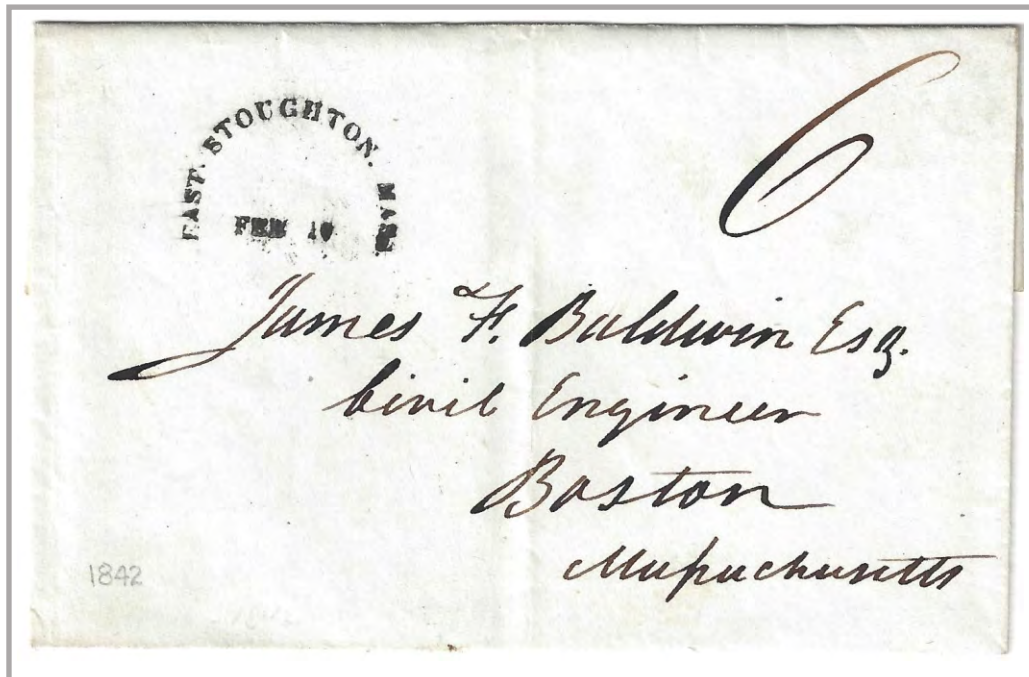 EAST. STOUGHTON. MASS
FEB
6
James F. Baldwin Esq.
Civil Engineer
Boston
Massachusetts
1842